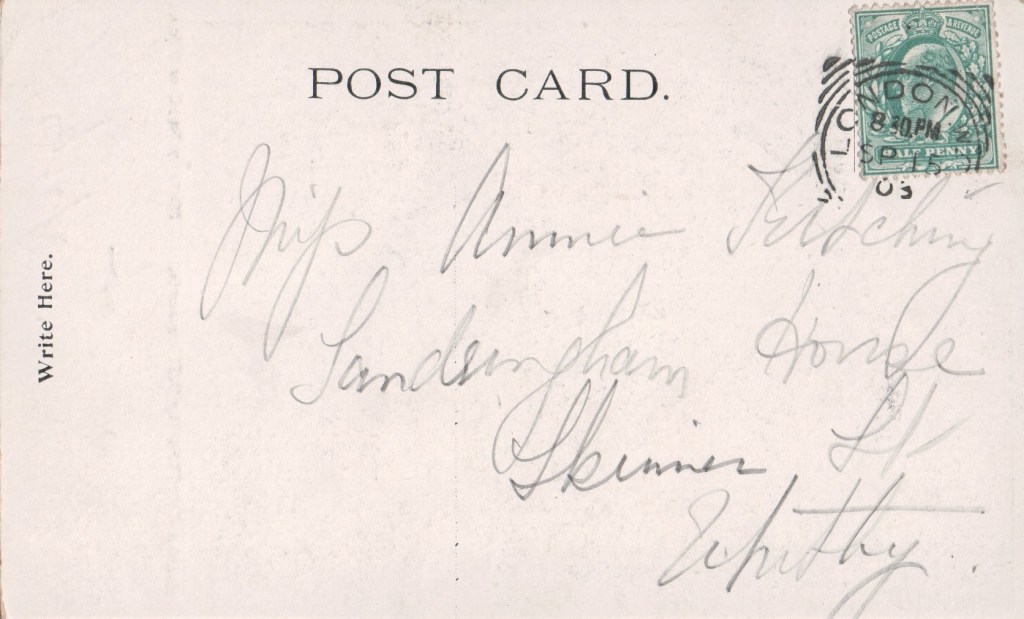 POST CARD.
POSTAGE & REVENUE
HALF PENNY
LONDON
8 30 PM
SP 15
03
Write Here.
Miss Annie
Sandringham House
Skinner St
Whitby.